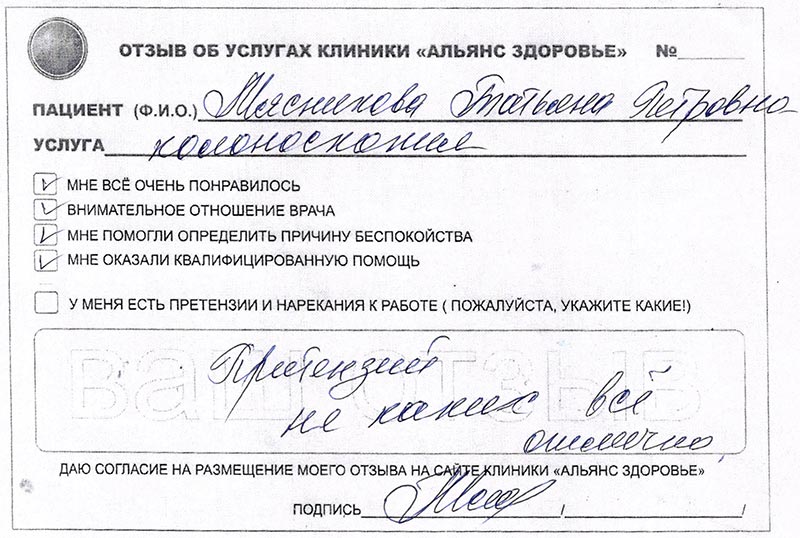 ОТЗЫВ ОБ УСЛУГАХ КЛИНИКИ «АЛЬЯНС ЗДОРОВЬЕ» №
ПАЦИЕНТ (Ф.И.О.) Мясникова Татьяна Петровна
УСЛУГА колоноскопия
МНЕ ВСЁ ОЧЕНЬ ПОНРАВИЛОСЬ
ВНИМАТЕЛЬНОЕ ОТНОШЕНИЕ ВРАЧА
МНЕ ПОМОГЛИ ОПРЕДЕЛИТЬ ПРИЧИНУ БЕСПОКОЙСТВА
МНЕ ОКАЗАЛИ КВАЛИФИЦИРОВАННУЮ ПОМОЩЬ
У МЕНЯ ЕСТЬ ПРЕТЕНЗИИ И НАРЕКАНИЯ К РАБОТЕ ( ПОЖАЛУЙСТА, УКАЖИТЕ КАКИЕ!)
ваш отзыв
Притензий
не каких всё
отлично
ДАЮ СОГЛАСИЕ НА РАЗМЕЩЕНИЕ МОЕГО ОТЗЫВА НА САЙТЕ КЛИНИКИ «АЛЬЯНС ЗДОРОВЬЕ»
ПОДПИСЬ / /